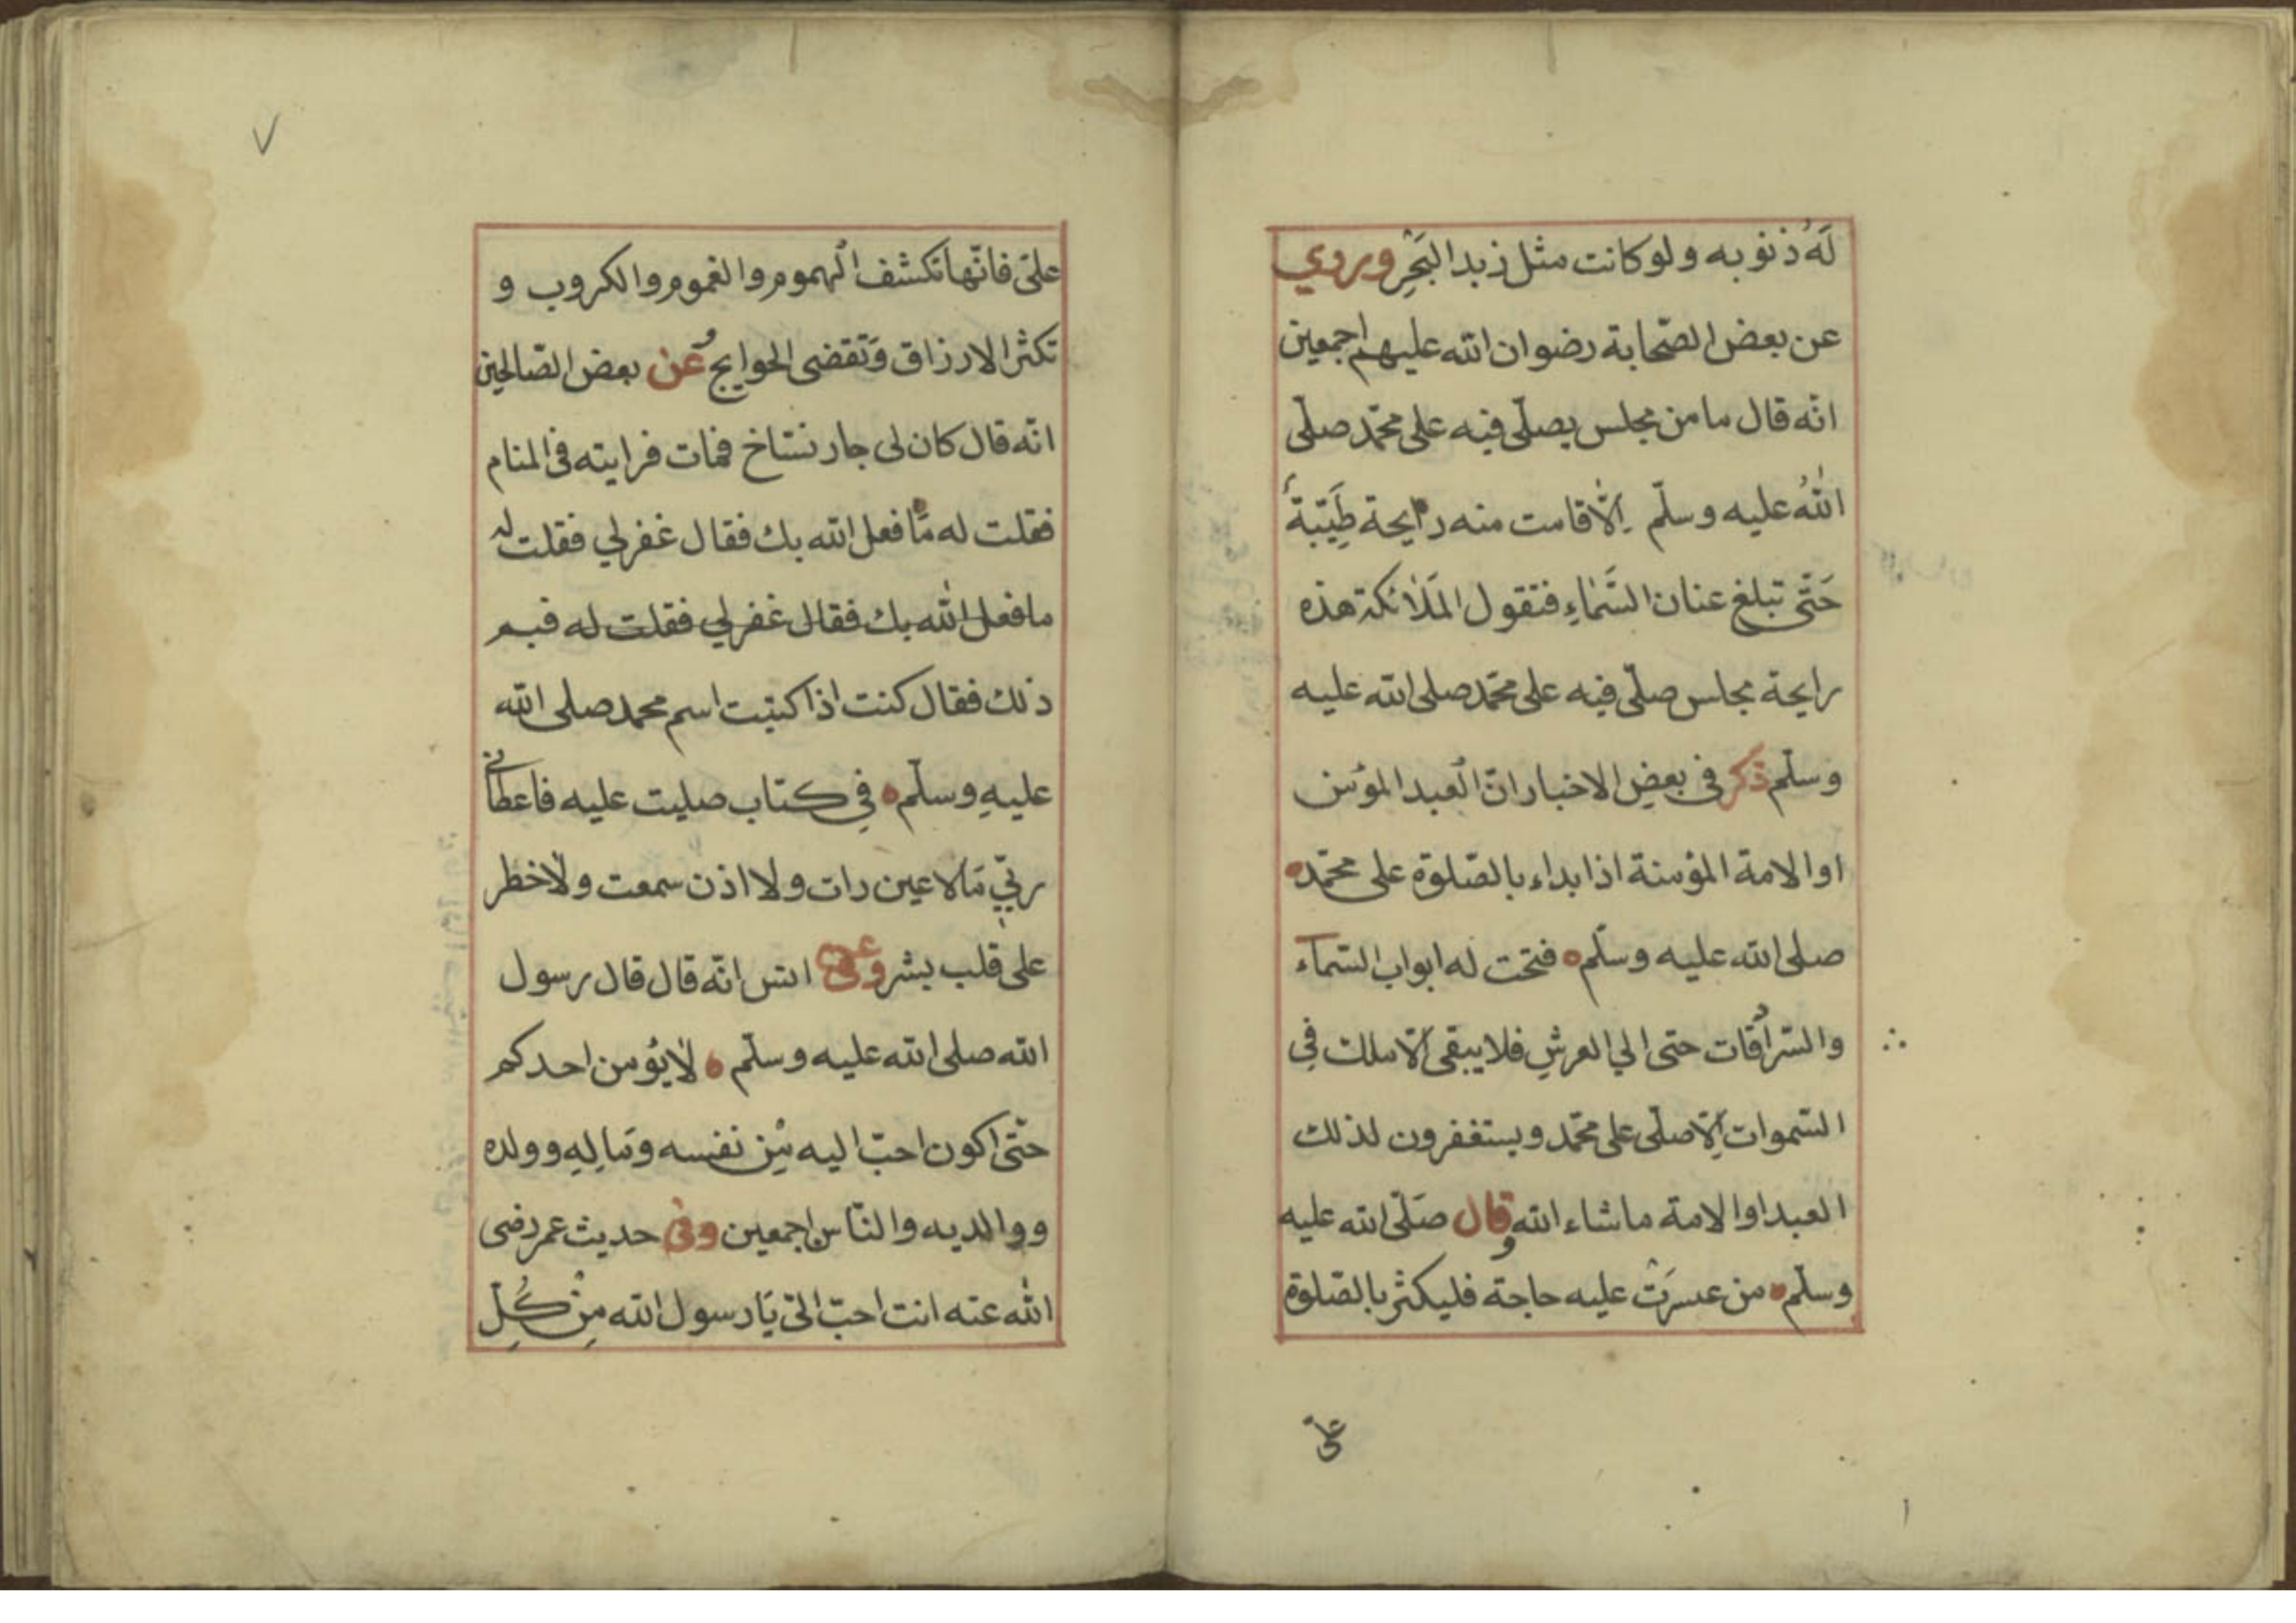 لَهُ ذنوبه ولو كانت مثل زبد البَحْرِ وروي
عن بعض الصّحابة رضوان الله عليهم اجمعين
انّه قال ما من مجلس يصلّى فيه على محمّد صلّى
اللهُ عليه وسلّم اِلّا قامت منه رايحة طَيّبةٌ
حَتّى تبلغ عنان السَّمَاءِ فتقول المَلَائكة هذه
رايحة مجلس صلّى فيه على محمّد صلى الله عليه
وسلّم ذكر فى بعضِ الاخبار انّ العبد المؤمن
او الامة المؤمنة اذا بداء بالصّلوة على محمّد
صلى الله عليه وسلّم فتحت له ابواب السّمآء
والسّرادقات حتى الي العرشِ فلا يبقى الّا ملك فِي
السّموات اِلّا صلّى على محمّد ويستغفرون لذلك
العبد او الامة ما شاء الله وقال صَلّى الله عليه
وسلّم من عسرَتْ عليه حاجة فليكثر بالصّلوة
علىّ
٧
علىّ فانّها تكشف الهموم والغموم والكروب و
تكثر الارزاق وَتقضى الحوايج وعن بعض الصّالحين
انّه قال كان لى جار نسّاخ فمات فرايته فى المنام
فقلت له مَا فعل الله بك فقال غفر لي فقلت له
ما فعل الله بك فقال غفر لي فقلت له فبم
ذلك فقال كنت اذا كتبت اسم محمد صلى الله
عليهِ وسلّم فِي كتاب صليت عليه فاعطانى
ربّي مَا لا عين رات ولا اذن سمعت ولَا خطر
على قلب بشر وعن انس انّه قال قال رسول
الله صلى الله عليه وسلّم لَا يؤمن احدكم
حتّى اكون احبّ اليه مِن نفسه ومَالِهِ وولده
ووالديه والنّاس اجمعين وفى حديث عمر رضى
الله عنه انت احبّ الىّ يَا رسول الله مِنْ كُلِّ